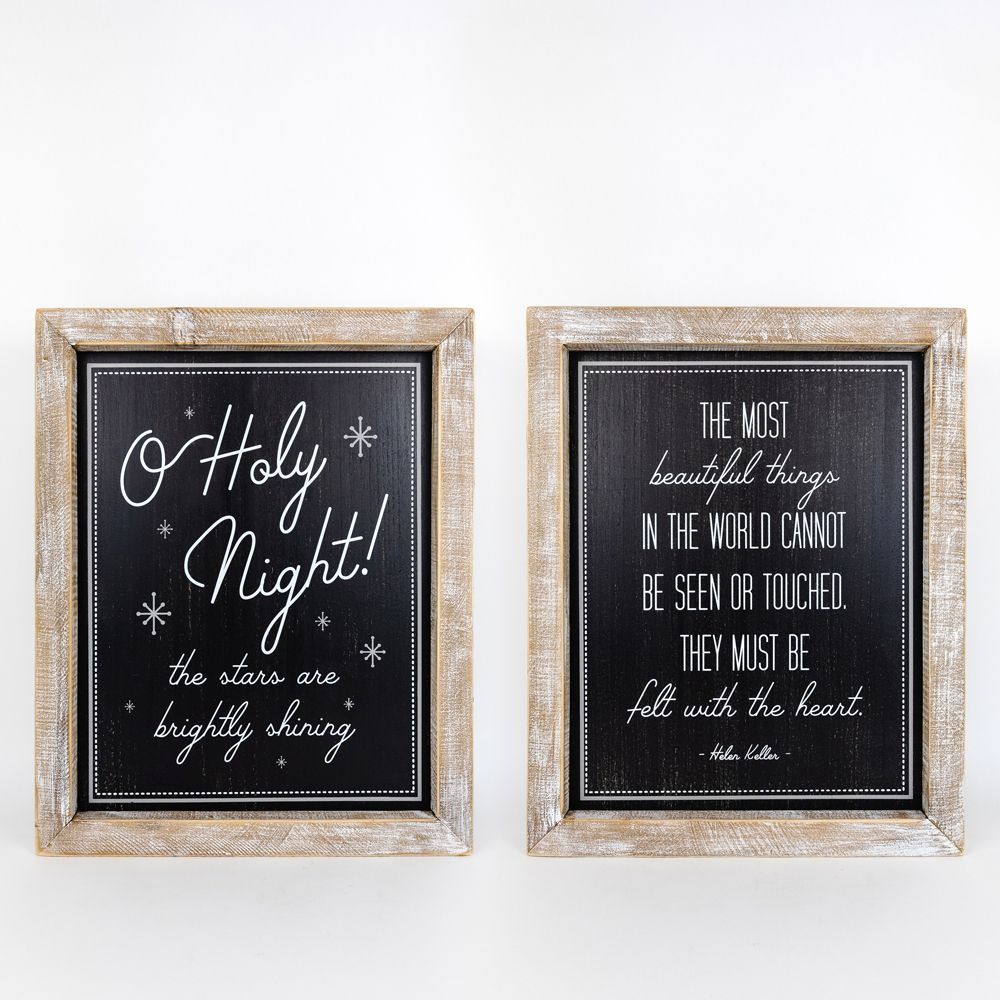 O Holy
Night!
the stars are
brightly shining
THE MOST
beautiful things
IN THE WORLD CANNOT
BE SEEN OR TOUCHED.
THEY MUST BE
felt with the heart.
- Helen Keller -